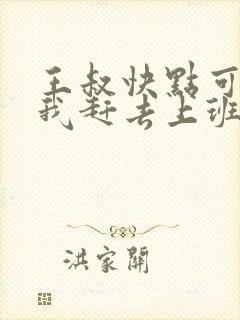 王叔快點可
我赶去上班
洪家開